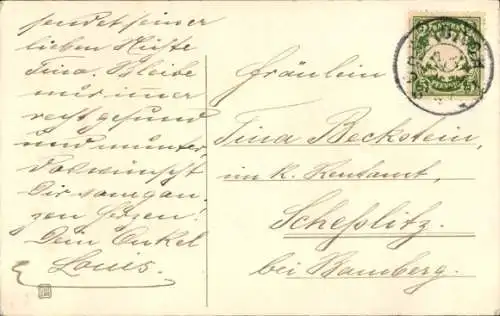 sendet seiner
lieben Nichte
Tina. Bleibe
nur immer
recht gesund
und munter,
das wünscht
Dir vom gan-
zen Herzen!
Dein Onkel
Louis.
Fräulein
Tina Beckstein,
im K. Rentamt,
Scheßlitz.
bei Bamberg.